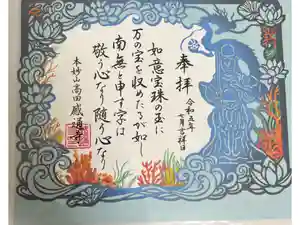 奉拝
令和五年
七月吉祥日
如意宝珠の玉に
万の宝を収めたるが如
南無と申す字は
敬う心なり随う心なり
本妙山高田感通寺